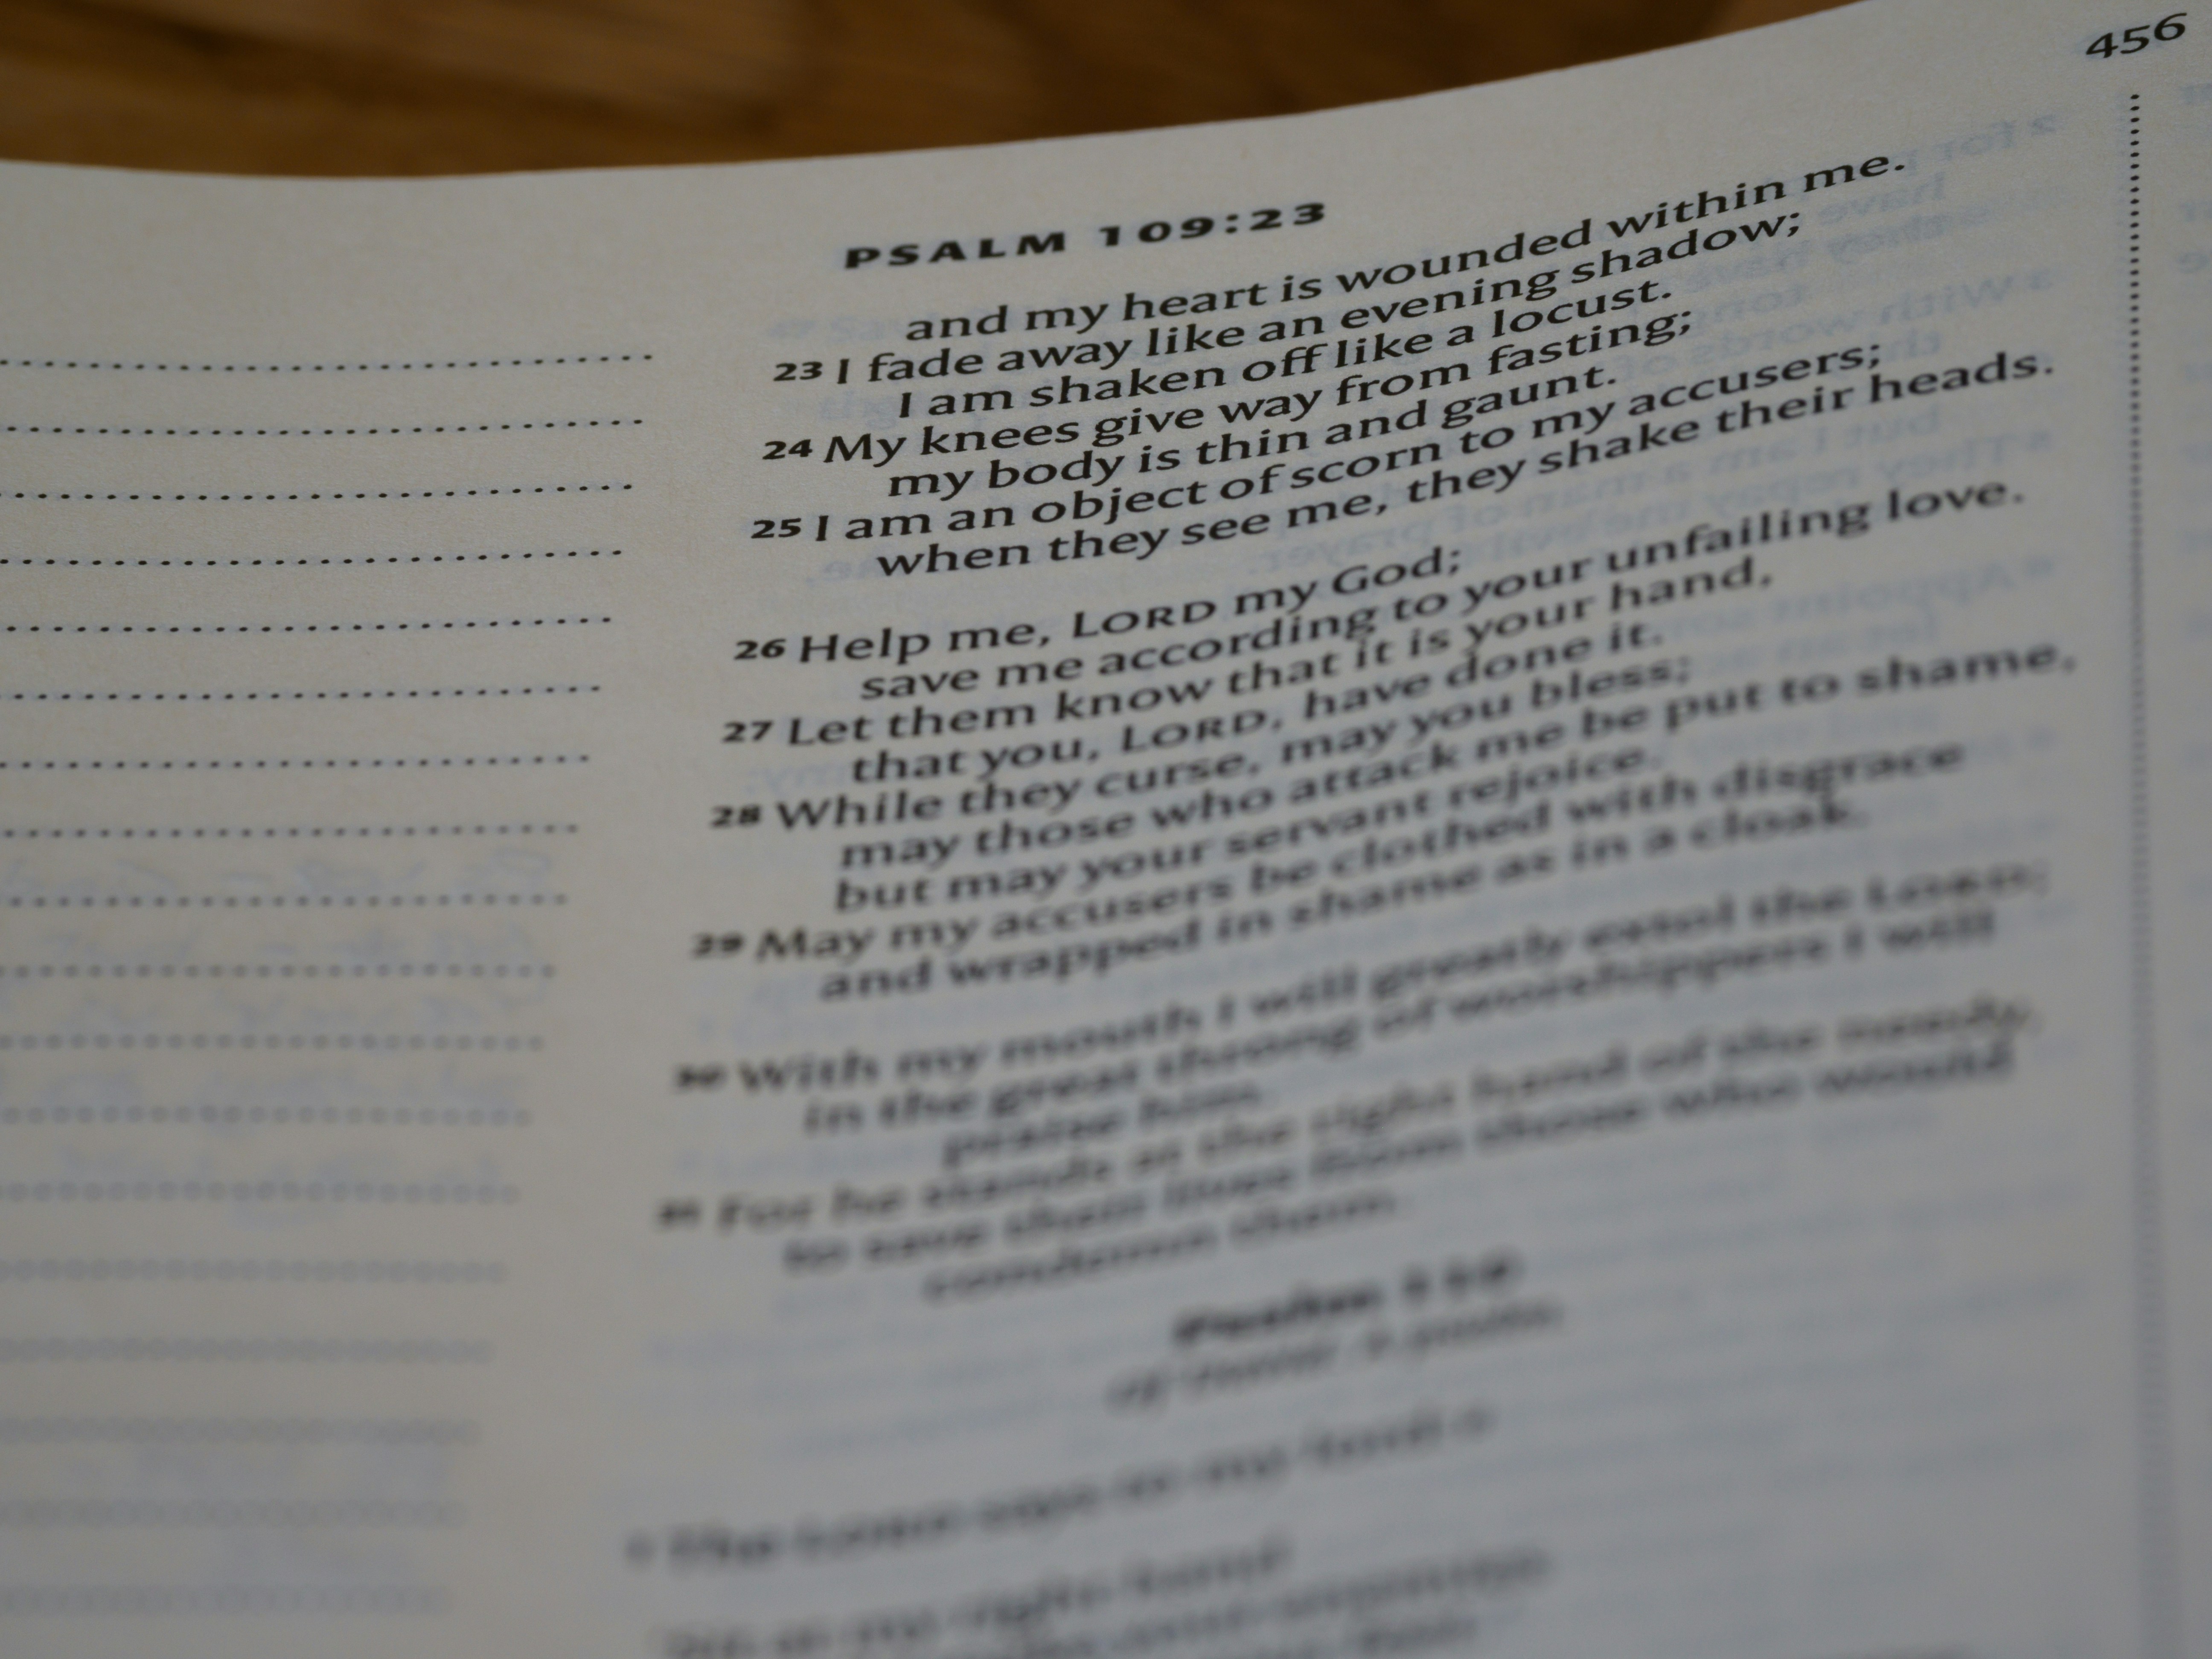 456
PSALM 109:23
and my heart is wounded within me.
23 I fade away like an evening shadow;
I am shaken off like a locust.
24 My knees give way from fasting;
my body is thin and gaunt.
25 I am an object of scorn to my accusers;
when they see me, they shake their heads.
26 Help me, LORD my God;
save me according to your unfailing love.
27 Let them know that it is your hand,
that you, LORD, have done it.
28 While they curse, may you bless;
may those who attack me be put to shame,
but may your servant rejoice.
29 May my accusers be clothed with disgrace
and wrapped in shame as in a cloak.
30 With my mouth I will greatly extol the LORD;
in the great throng of worshippers I will
praise him.
31 For he stands at the right hand of the needy,
to save their lives from those who would
condemn them.
Psalm 110
Of David. A psalm.
The LORD says to my lord: